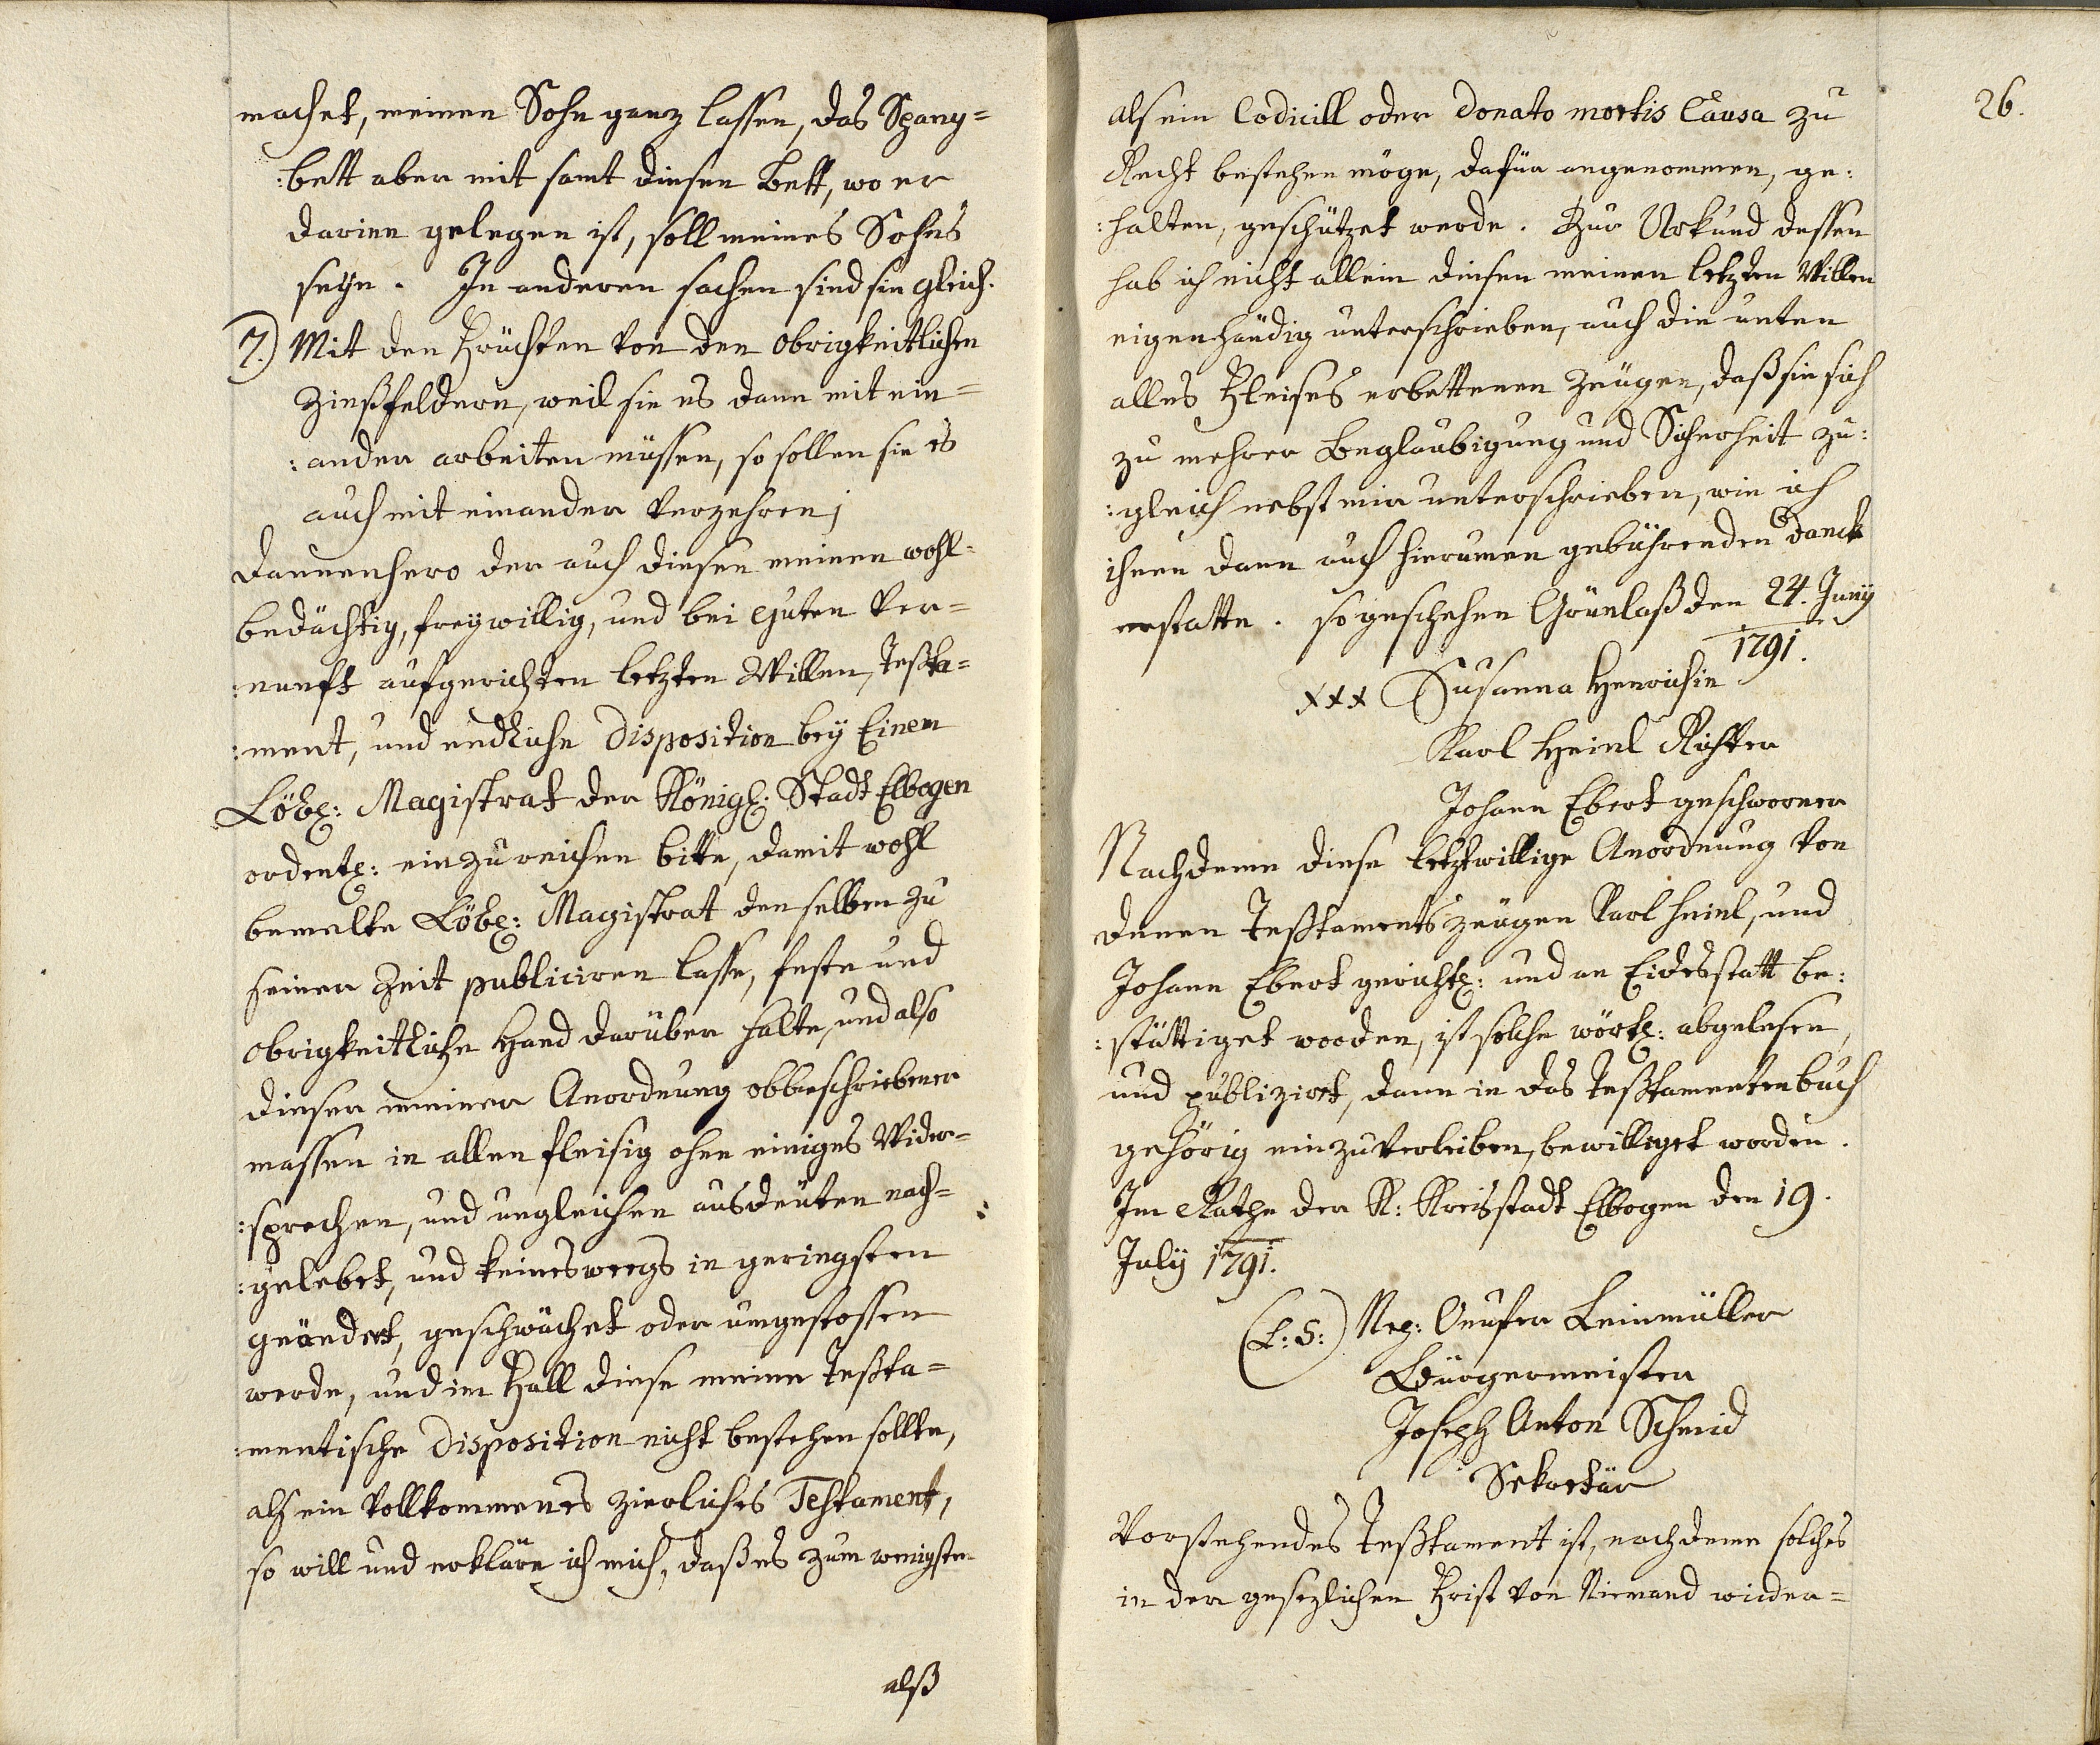 machet, meinen Sohn ganz lassen, das Spany=
:bett aber mit samt diesen Bett, wo er
darinn gelegen ist, soll meines Sohns
seyn. In anderen sachen sind sie gleich.
7.) Mit den Früchten von den obrigkeitlichen
Zinßfeldern, weil sie es dann mit ein=
:ander arbeiten müssen, so sollen sie es
auch mit einander verzehren;
Dannenhero der auch diesen meinen wohl=
bedächtig, freywillig, und bei guten Ver=
:nunft aufgerichten letzten Willen, Testa=
:ment, und endliche Disposition bey Einem
Löbl: Magistrat der Königl: Stadt Elbogen
ordentl: einzureichen bitte, damit wohl
bemelte Löbl: Magistrat denselben zu
seiner Zeit publiciren lasse, feste und
obrigkeitliche Hand darüber halte, und also
dieser meiner Anordnung obbeschriebener
massen in allen fleisig ohne einiges Wider=
:sprechen, und ungleichen ausdeuten nach=
:gelebet, und keinesweegs in geringsten
geändert, geschwächet oder umgestossen
werde, und im Fall diese meine Testa=
:mentische Disposition nicht bestehen sollte,
als ein vollkommenes zierliches Testament,
so will und erkläre ich mich, daß es zum wenigsten
alß
26.
als ein Codicill oder Donato mortis Causa zu
Recht bestehen möge, dafür angenommen, ge:
:halten, geschützet werde. Zur Urkund dessen
hab ich nicht allein diesen meinen letzten Willen
eigenhändig unterschrieben, auch die unten
alles Fleises erbettenen Zeugen, daß sie sich
zu mehrer Beglaubigung und Sicherheit zu:
:gleich nebst mir unterschrieben, wie ich
ihnen dann auch hierumen gebührenden Danck
erstatte. so geschehen Grünlaß den 24. Juny
1791.
xxx Susanna Henrichin
Karl Heinl Richter
Johann Ebert geschworner
Nachdeme diese letztwillige Anordnung von
denen Testaments zeugen Karl Heinl, und
Johann Ebert gerichtl: und an Eidesstatt be:
:stättiget worden, ist solche wörtl: abgelesen,
und publizirt, dann in das Testamentenbuch
gehörig einzuverleiben, bewilliget worden.
Im Rathe der K: Kreisstadt Elbogen den 19.
July 1791.
(L: S:) Leinmüller
Bürgermeister
Joseph Anton Schmid
Sekretär
Vorstehendes Testament ist, nachdeme solches
in der gesezlichen Frist von Niemand wieder=